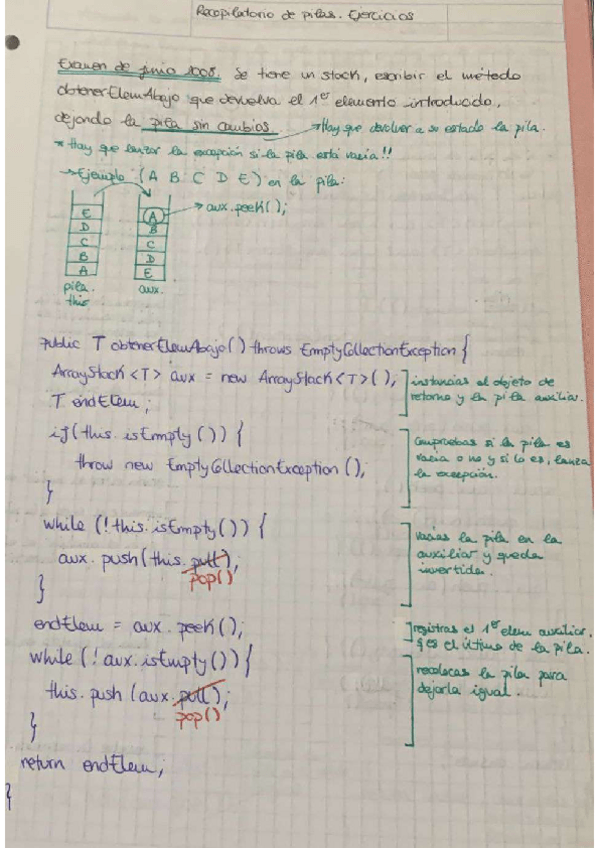 Recopilatorio de pilas. Ejercicios
Examen de junio 2008. Se tiene un stack, escribir el método
obtenerElemAbajo que devuelva el 1er elemento introducido,
dejando la pila sin cambios. → Hay que devolver a su estado la pila.
* Hay que lanzar la excepción si la pila está vacía!!
→ Ejemplo: (A B C D E) en la pila:
E
D
C
B
A
pila.
this
A
B
C
D
E
aux.
→ aux.peek();
public T obtenerElemAbajo() throws EmptyCollectionException {
ArrayStack <T> aux = new ArrayStack <T>();
T endElem;
instancias el objeto de
retorno y la pila auxiliar.
if(this.isEmpty()) {
throw new EmptyCollectionException();
}
Compruebas si la pila es
vacia o no y si lo es, lanza
la excepción.
while (!this.isEmpty()) {
aux.push(this.pull);
pop()
}
vacias la pila en la
auxiliar y queda
invertida.
endElem = aux.peek();
registras el 1er elem auxiliar,
q es el último de la pila.
while (!aux.isEmpty()) {
this.push (aux.pull);
pop()
}
recolocas la pila para
dejarla igual.
return endElem;
}